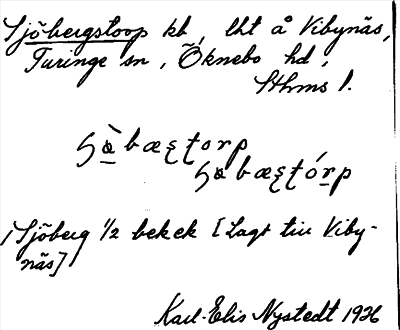 Sjöbergstorp kb, lht å Vibynäs,
Turinge sn, Öknebo hd,
Sthms l.
ʃö̀bæʂʈorp
ʃöbæʂʈórp
/Sjöberg 1/2 bekek [Lagt till Viby-
näs]
Karl-Elis Nystedt 1936